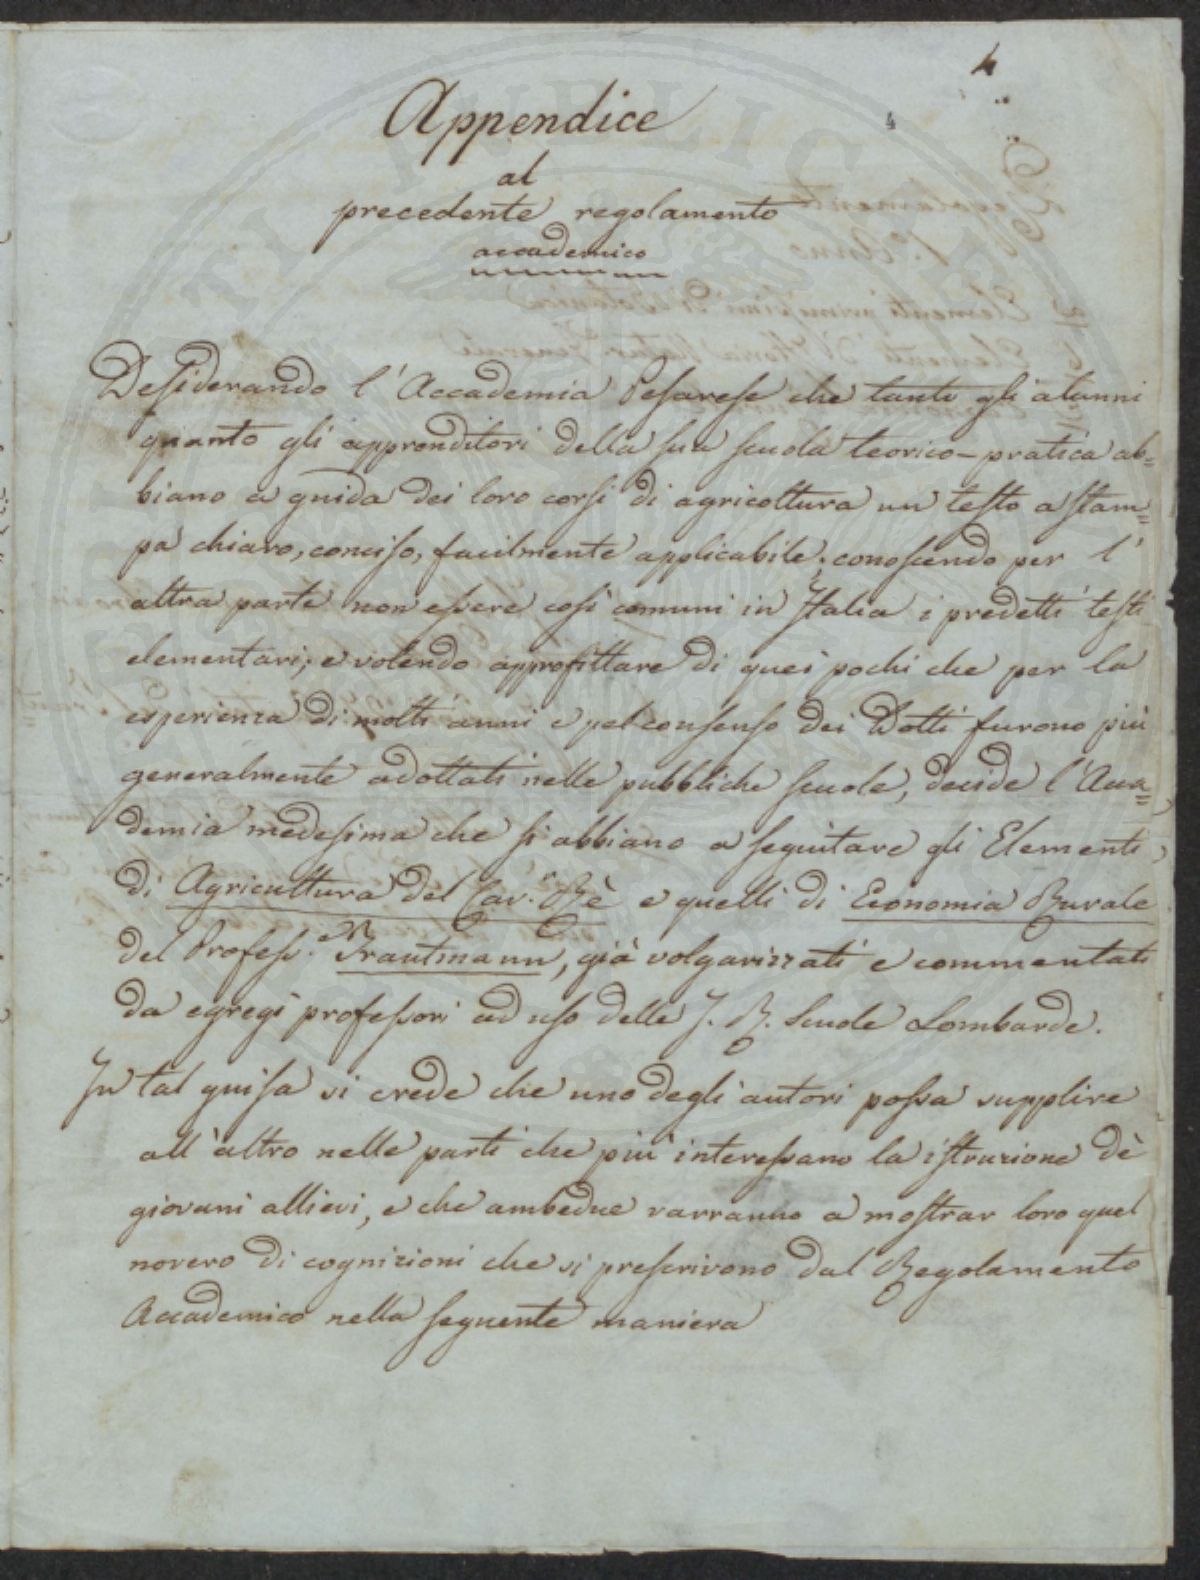 4
4
Appendice
al
precedente regolamento
accademico
Desiderando l'Accademia Pesarese che tanto gli alunni
quanto gli apprenditori della sua scuola teorico-pratica ab=
biano a guida dei loro corsi di agricoltura un testo a stam=
pa chiaro, conciso, facilmente applicabile; conoscendo per l'
altra parte non essere così comuni in Italia i predetti testi
elementari; e volendo approfittare di quei pochi che per la
esperienza di molti anni e pel consenso dei Dotti furono più
generalmente adottati nelle pubbliche scuole, decide l'Acca=
demia medesima che si abbiano a seguitare gli Elementi
di Agricultura del Cav.r Rè e quelli di Economia Rurale
del Profess.e Trautmann, già volgarizzati e commentati
da egregi professori ad uso delle J. R. Scuole Lombarde.
In tal guisa si crede che uno degli autori possa supplire
all'altro nelle parti che più interessano la istruzione dè
giovani allievi, e che ambedue varranno a mostrar loro quel
novero di cognizioni che si prescrivono dal Regolamento
Accademico nella seguente maniera